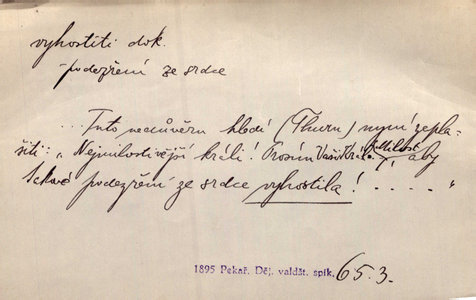 vyhostiti dok.
podezření ze srdce
... Tuto nedůvěru hledí (Thurn) nyní zapla-
šiti: „Nejmilostivější králi! Prosím Vaši Král. Milost, aby
takové podezření ze srdce vyhostila! ..... "
1895 Pekař, Děj. valdšt. spik. 65.3.